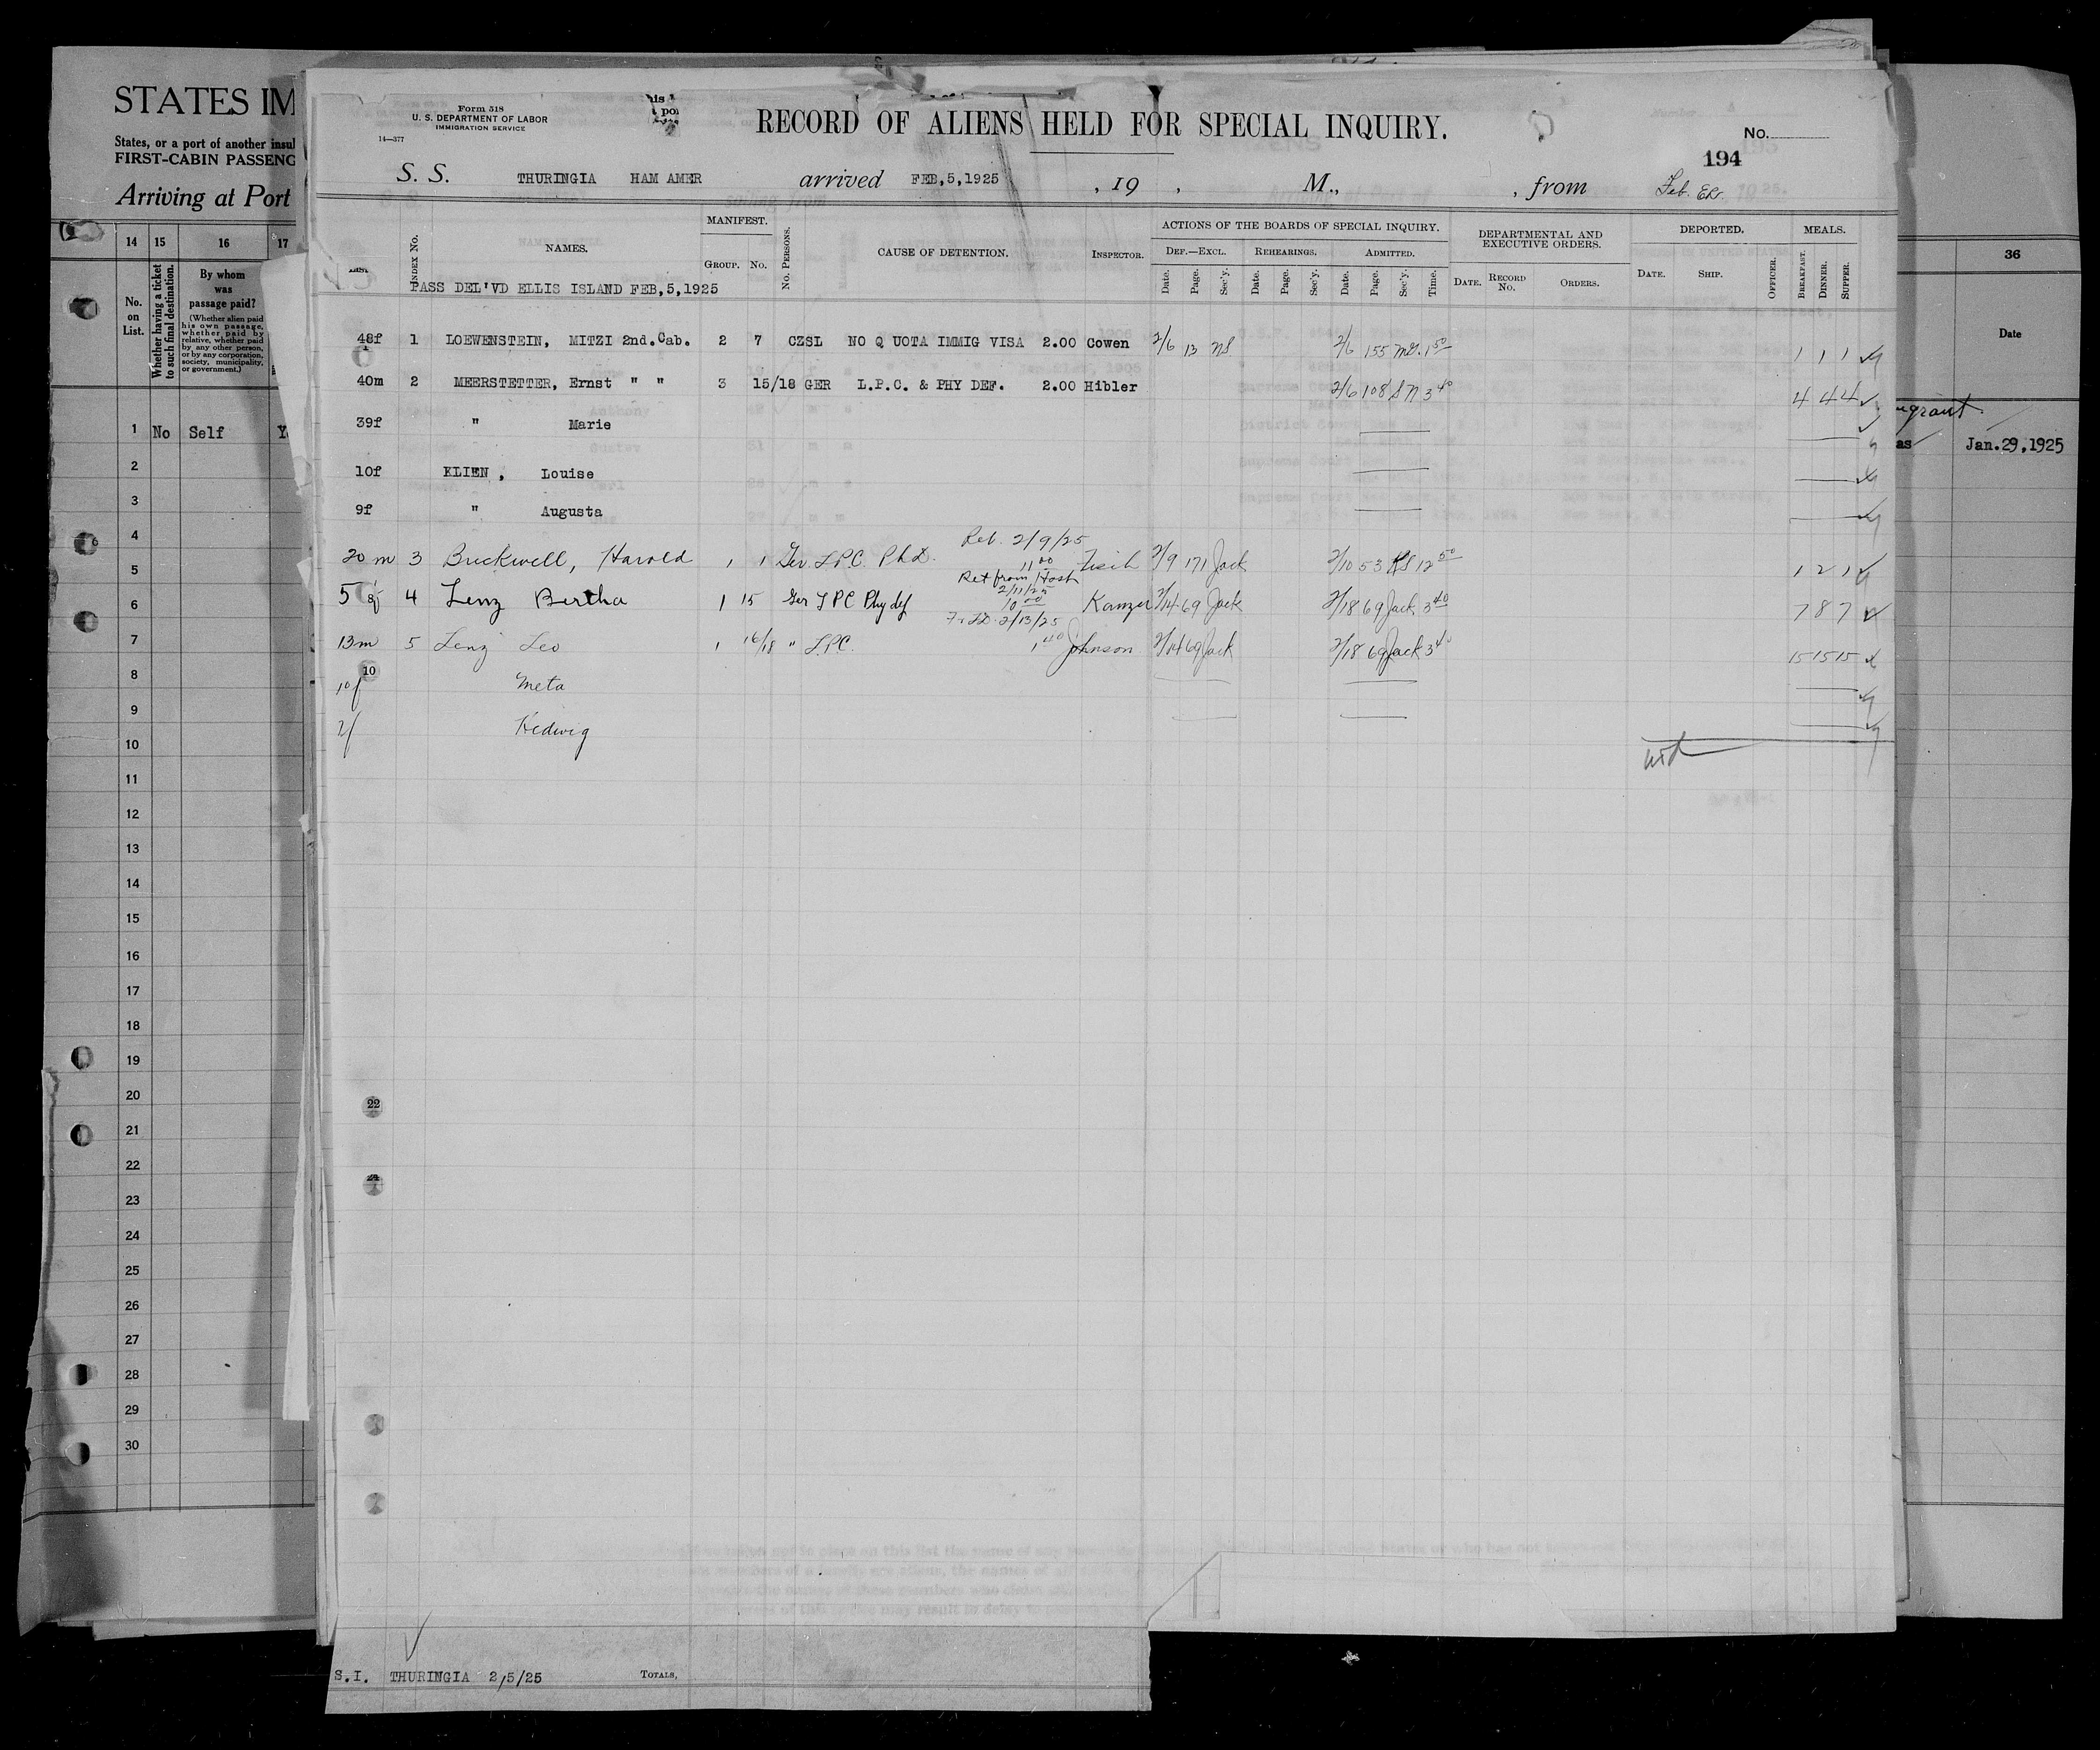 STATES IM
States, or a port of another insul
FIRST-CABIN PASSENG
Arriving at Port
14 15 16 17
No. on List.
Whether having a ticket to such final destination.
By whom was passage paid?
(Whether alien paid his own passage, whether paid by relative, whether paid by any other person, or by any corporation, society, municipality, or government.)
1 No Self Y
2
3
4
5
6
7
8
9
10
11
12
13
14
15
16
17
18
19
20
21
22
23
24
25
26
27
28
29
30
Form 518
U. S. DEPARTMENT OF LABOR
IMMIGRATION SERVICE
14—377
RECORD OF ALIENS HELD FOR SPECIAL INQUIRY.
No.
194
S. S. THURINGIA HAM AMER arrived FEB,5,1925 , 19 , M., , from
INDEX NO. NAMES. MANIFEST. GROUP. NO. NO. PERSONS. CAUSE OF DETENTION. INSPECTOR. ACTIONS OF THE BOARDS OF SPECIAL INQUIRY. DEPARTMENTAL AND EXECUTIVE ORDERS. DEPORTED. MEALS.
DEF.—EXCL. REHEARINGS. ADMITTED.
Date. Page. Sec'y. Date. Page. Sec'y. Date. Page. Sec'y. Time. DATE. RECORD NO. ORDERS. DATE. SHIP. OFFICER. BREAKFAST. DINNER. SUPPER.
PASS DEL'VD ELLIS ISLAND FEB,5,1925
48f 1 LOEWENSTEIN, MITZI 2nd.Cab. 2 7 CZSL NO Q UOTA IMMIG VISA 2.00 Cowen 2/6 13 NS 2/6 155 1 50 1 1 1
40m 2 MEERSTETTER, Ernst " " 3 15/18 GER L.P.C. & PHY DEF. 2.00 Hibler 2/6 108 SN 3 40 4 4 4
39f " Marie
10f KLIEN , Louise
9f " Augusta
Ret. 2/9/25
20 m 3 Bruckwell, Harold 1 1 Ger. LPC. Ph.D. 11 00 2/9 171 Jack 2/10 53 12 50 1 2 1
Ret from Hosp
2/11/25
5 f 4 Lenz Bertha 1 15 Ger LPC Phy def 10 00 Kanzer 2/14 69 Jack 2/18 69 Jack 3 40 7 8 7
2/13/25
13m 5 Lenz Leo 1 16/18 " LPC. 1 40 Johnson 2/14 69 Jack 2/18 69 Jack 3 40 15 15 15
10
10f Meta
2f Hedwig
22
24
S.I. THURINGIA 2/5/25 TOTALS,
36
Date
Jan.29,1925